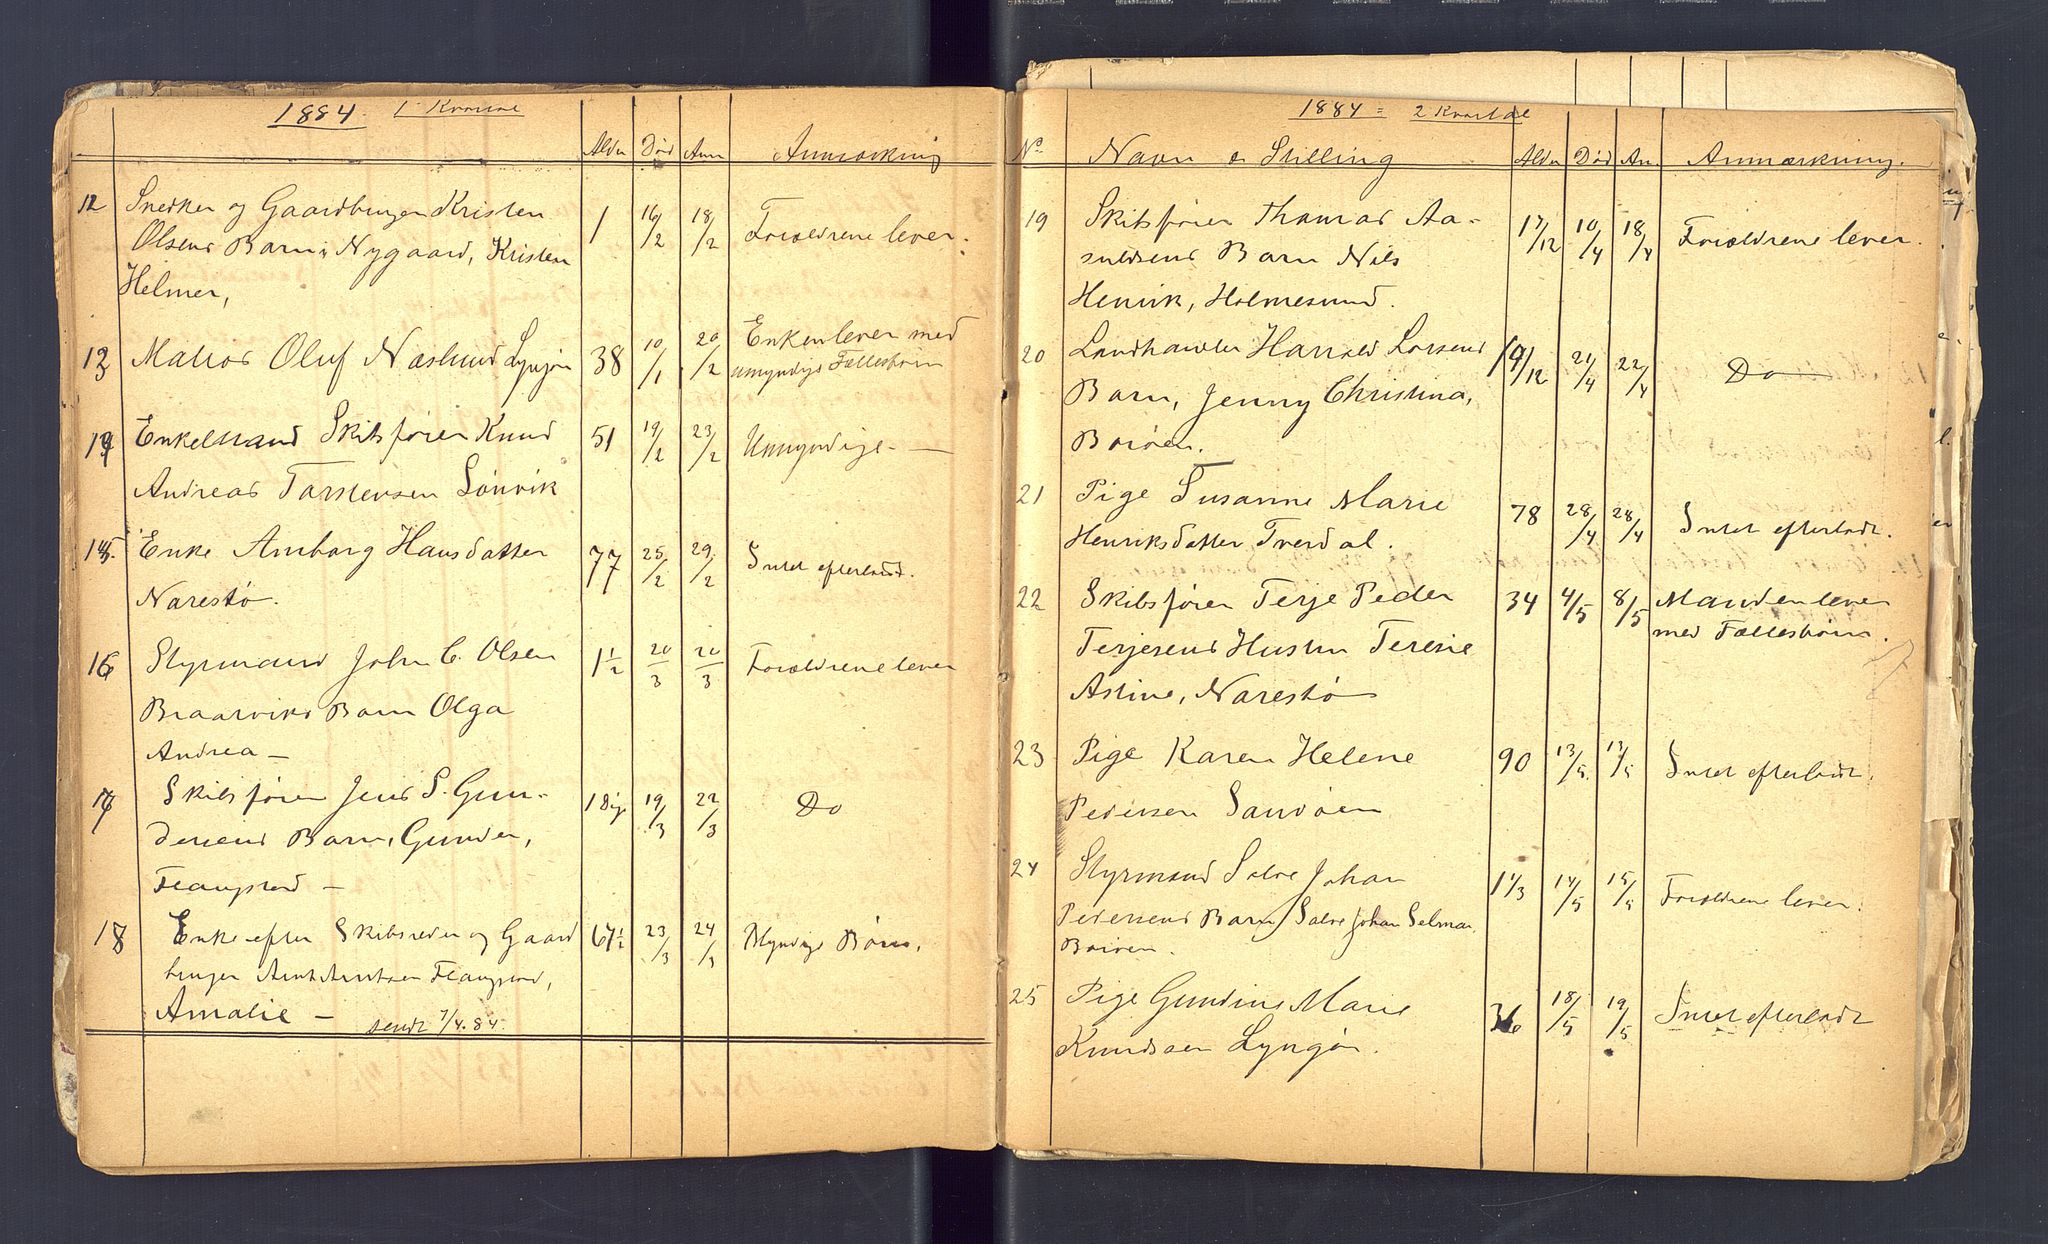 1884. 1 Kvartal
Alder Død Anm Anmærkning
12 Snedker og Gaardbruger Kristen 1 16/2 18/2 Forældrene lever.
Olsens Barn, Nygaard, Kristen
Helmer,
13 Matros Oluf Næslund Lyngør 38 10/1 20/2 Enken lever med
umyndige Fællesbørn
14 Enkemand Skibsfører Knud 51 19/2 23/2 Umyndige —
Andreas Tarstensen Sønvik
15. Enke Anborg Hansdatter 77 25/2 29/2 Intet efterladt.
Narestø.
16 Styrmand John C. Olsen 1 1/2 20/3 20/3 Forældrene lever
Braarviks Barn Olga
Andrea —
17 Skibsfører Jens S. Gun- 19/3 22/3 Do
dersens Barn, Gunder,
Flangstad —
18 Enke efter Skibsreder og Gaard 67 1/2 23/3 24/3 Myndige Børn.
bruger Amt Amtsen Flangstad,
Amalie — sendt 7/4.84.
1884 = 2 Kvartal
No Navn o Stilling Alder Død An. Anmærkning.
19 Skibsfører Thomas Aa- 17/12 10/4 18/4 Forældrene lever.
suldsens Barn Nils
Henrik, Holmesund.
20 Landhandler Harald Larsens 19/12 21/4 22/4 Do
Barn, Jenny Christina,
Borøen.
21 Pige Susanne Marie 78 28/4 28/4 Intet efterladt.
Henriksdatter Tverdal.
22 Skibsfører Terje Peder 34 4/5 8/5 Manden lever
Terjesens Hustru Terese med Fællesbørn.
Astine, Narestø
23 Pige Karen Helene 90 13/5. 13/5 Intet efterladt.
Pedersen Sandøen
24 Styrmand Salve Johan 1 1/3 14/5 15/5 Forældrene lever.
Pedersens Barn Salve Johan Selmar
Borøen.
25 Pige Gundine Marie 36 18/5 19/5 Intet efterladt
Knudsen Lyngør.